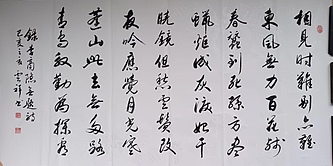 相見時難別亦難
東風無力百花殘
春蠶到死絲方盡
蠟炬成灰淚始干
曉鏡但愁雲鬢改
夜吟應覺月光寒
蓬山此去無多路
青鳥殷勤為探看
錄李商隱無題詩